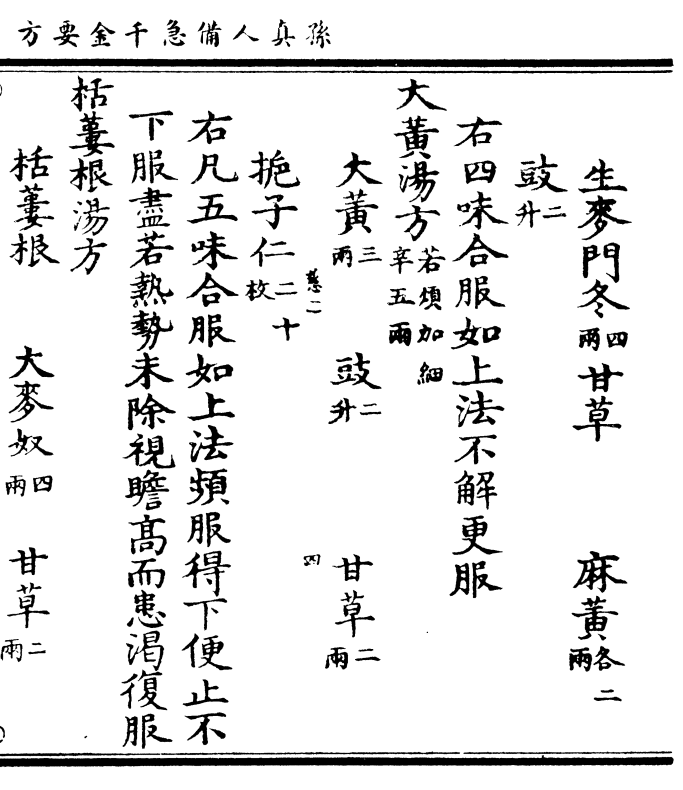 孫真人備急千金要方
生麥門冬四兩 甘草 麻黃各二兩
豉二升
右四味合服如上法不解更服
大黃湯方 若煩加細辛五兩
大黃三兩 豉二升 甘草二兩
二 四
梔子仁二十枚
右凡五味合服如上法頻服得下便止不
下服盡若熱勢未除視瞻高而患渴復服
栝蔞根湯方
栝蔞根 大麥奴四兩 甘草二兩